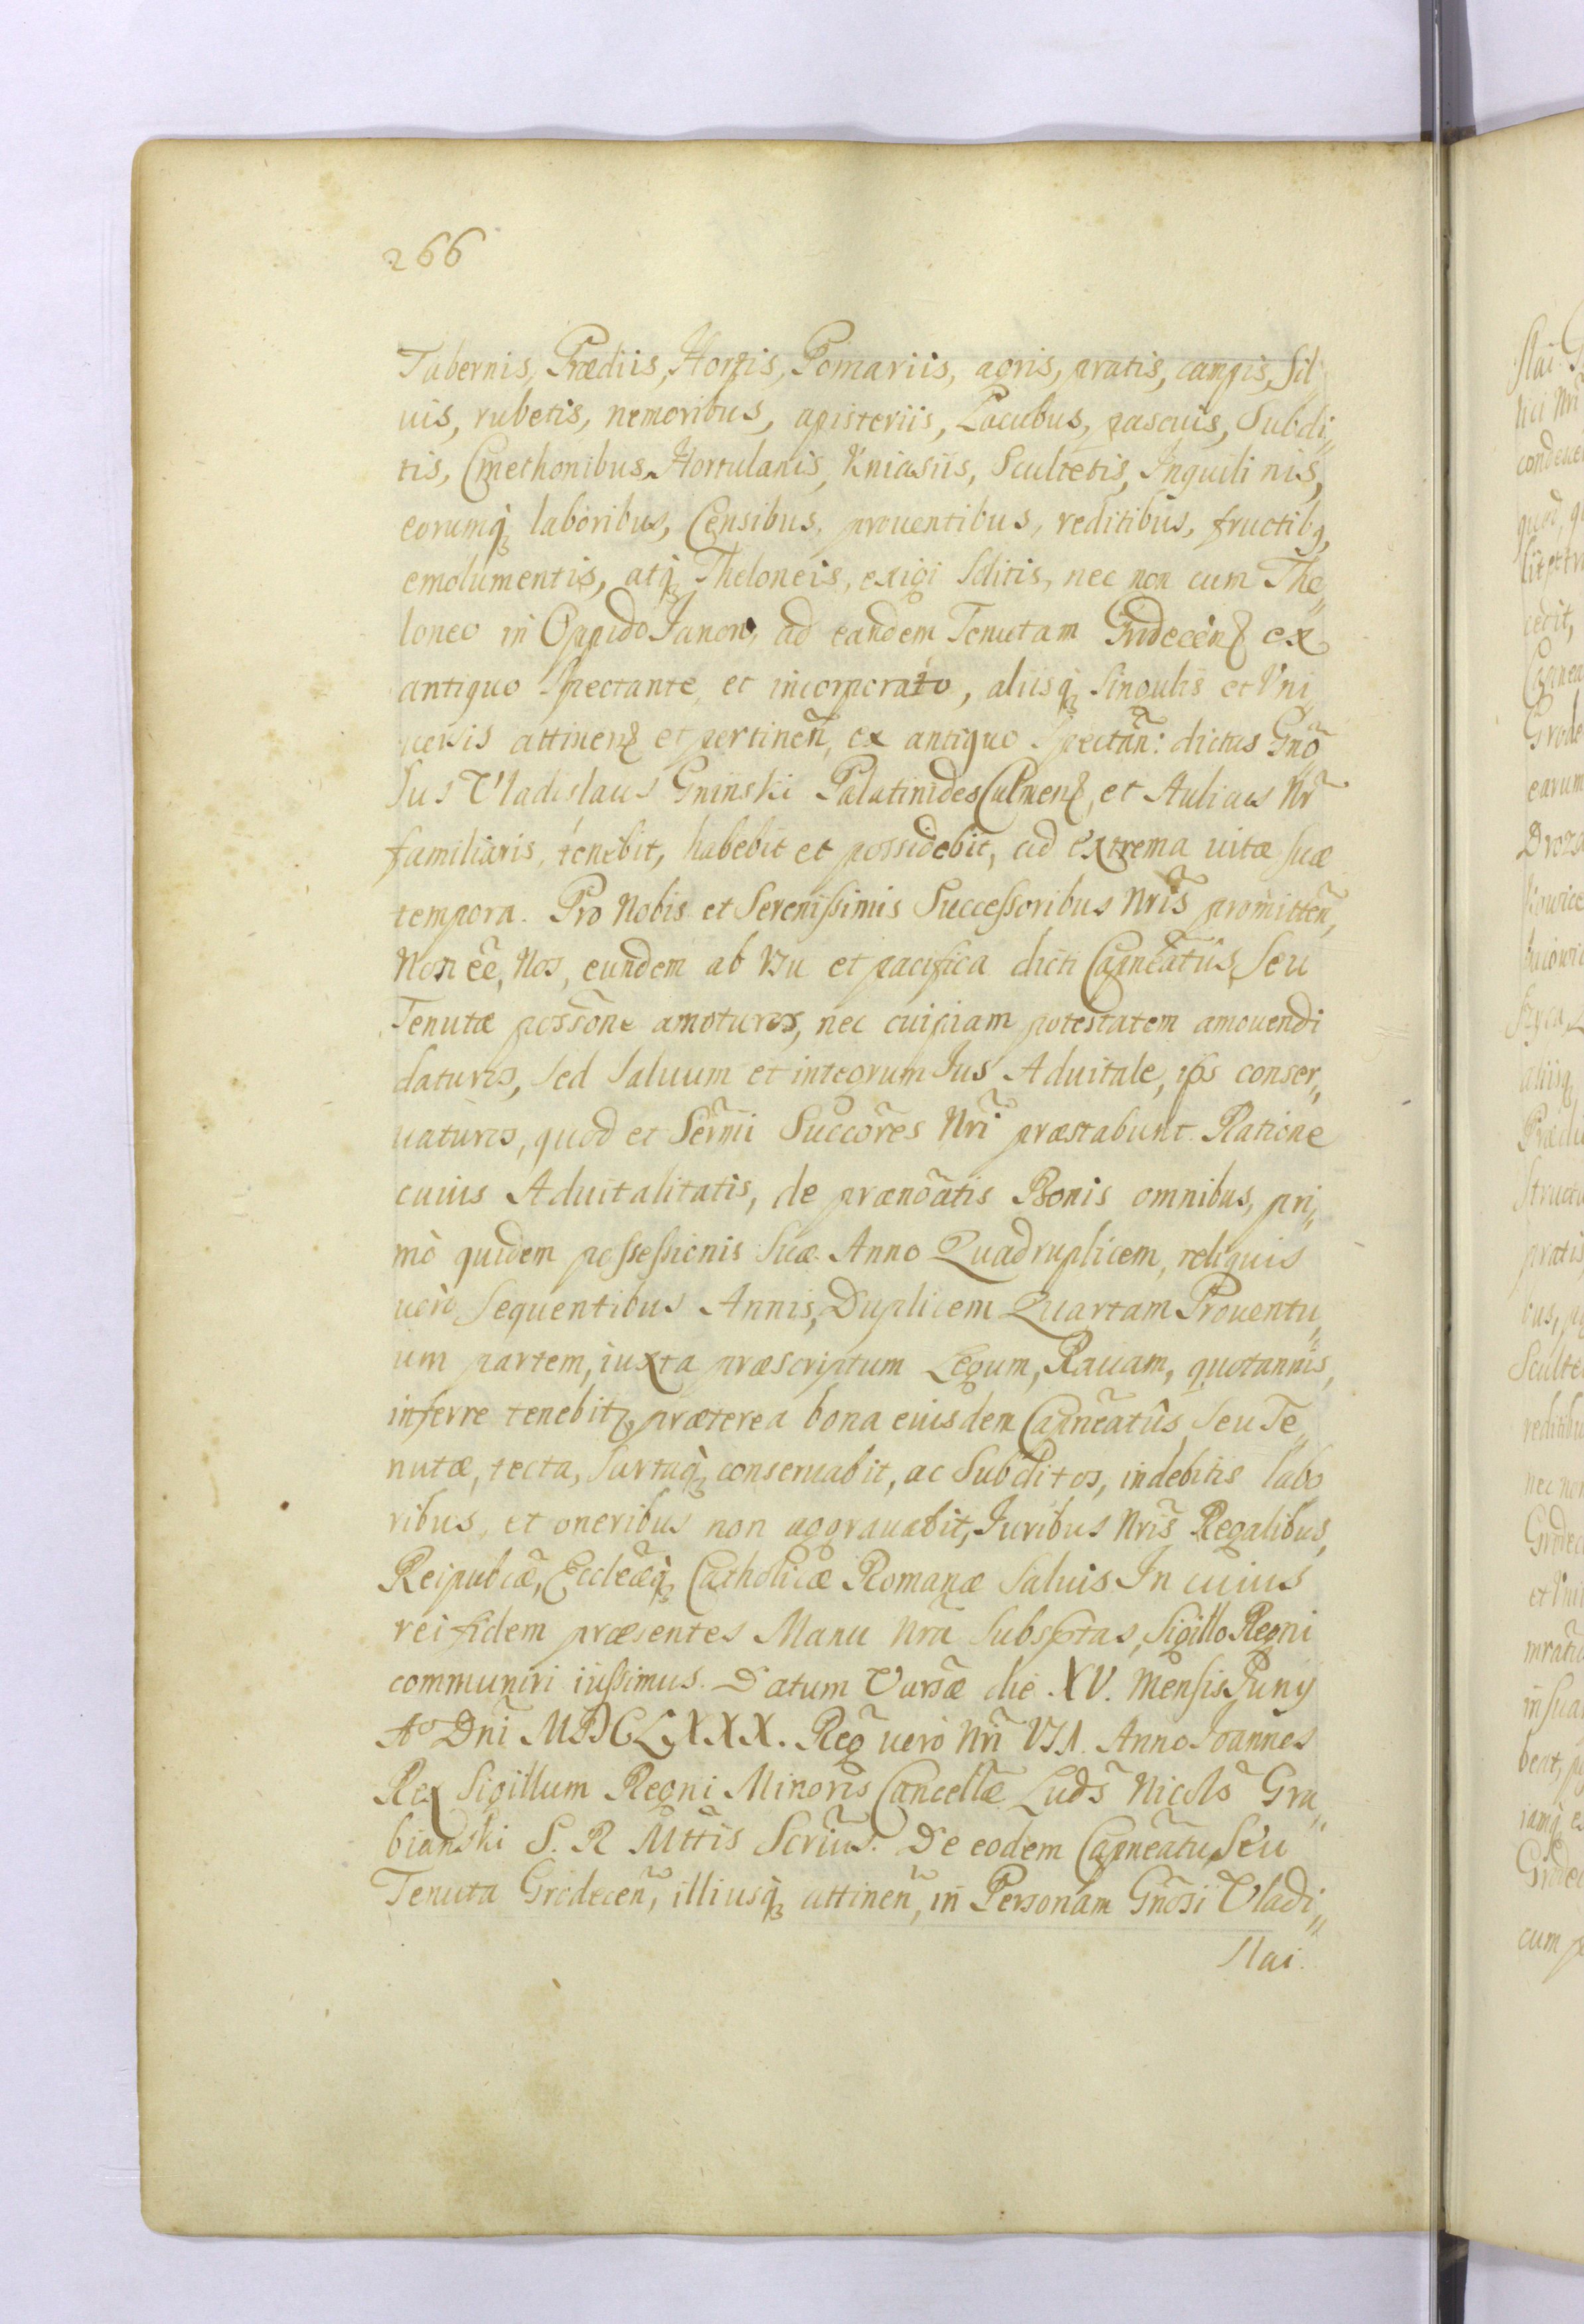 266
Tabernis, Prædiis, Hortis, Pomariis, agris, pratis, campis, Sil„
uis, rubetis, nemoribus, apisteriis, Lacubus, pascuis, Subdi„
tis, Cmethonibus, Hortulanis, Kniasiis, Scultetis, Inquilinis,
eorumq₃ laboribus, Censibus, prouentibus, reditibus, fructibꝯ,
emolumentis, atq₃ Theloneis, exigi Solitis, nec non cum The„
loneo in Oppido Janow, ad eandem Tenutam Grodecen̄ ex
antiquo Spectante, et incorporato, aliisq₃ Singulis et Vni„
uersis attinen̄ et pertinen̄, ex antiquo Spectan̄: dictus Gnō
sus Vladislaus Gninski Palatinides Culmen̄, et Aulicus Nr̃
familiaris, tenebit, habebit et possidebit, ad extrema uitæ suæ
tempora. Pro Nobis et Serenissimis Successoribus Nrĩs promitten̄,
Non eẽ, Nos, eundem ab Vsu et pacifica dicti Capneãtûs, Seu
Tenutæ possõne amoturos, nec cuipiam potestatem amouendi
daturos, sed Saluum et integrum Ius Aduitale, ips conser„
uaturos, quod et Serm̃i Succõres Nrĩ præstabunt. Ratione
cuius Aduitalitatis, de prænõatis Bonis omnibus, pri„
mò quidem possessionis Suæ Anno Quadruplicem, reliquis
uerò Sequentibus Annis, Duplicem Quartam Prouentu„
um partem, iuxta præscriptum Legum, Rauam, quotannis,
inferre tenebit₃, præterea bona eiusdem Capneãtûs Seu Te„
nutæ, tecta, Sartaq₃ conseruabit, ac Subditos, indebitis labo
ribus, et oneribus non aggrauabit, Iuribus Nrĩs Regalibus,
Reipublcæ̃, Eccleæ̃q₃ Catholicæ Romanæ Saluis. In cuius
rei fidem præsentes Manu Nrã Subsptas, Sigillo Regni
communiri iussimus. Datum Varsæ̃ die XV. Mensis Iuny
Aᵒ Dnĩ MDCLXXX. Reg̃ uerò Nrĩ VII. Anno Joannes
Rex Sigillum Regni Minoris Cancellæ̃ Luds̃ Nicols̃ Gra„
bianski S. R. Mttis Scriũs. De eodem Capneãtu, Seu
Tenuta Grodecen̄, illiusq₃ attinen̄, in Personam Gnõsi Vladi„
slai